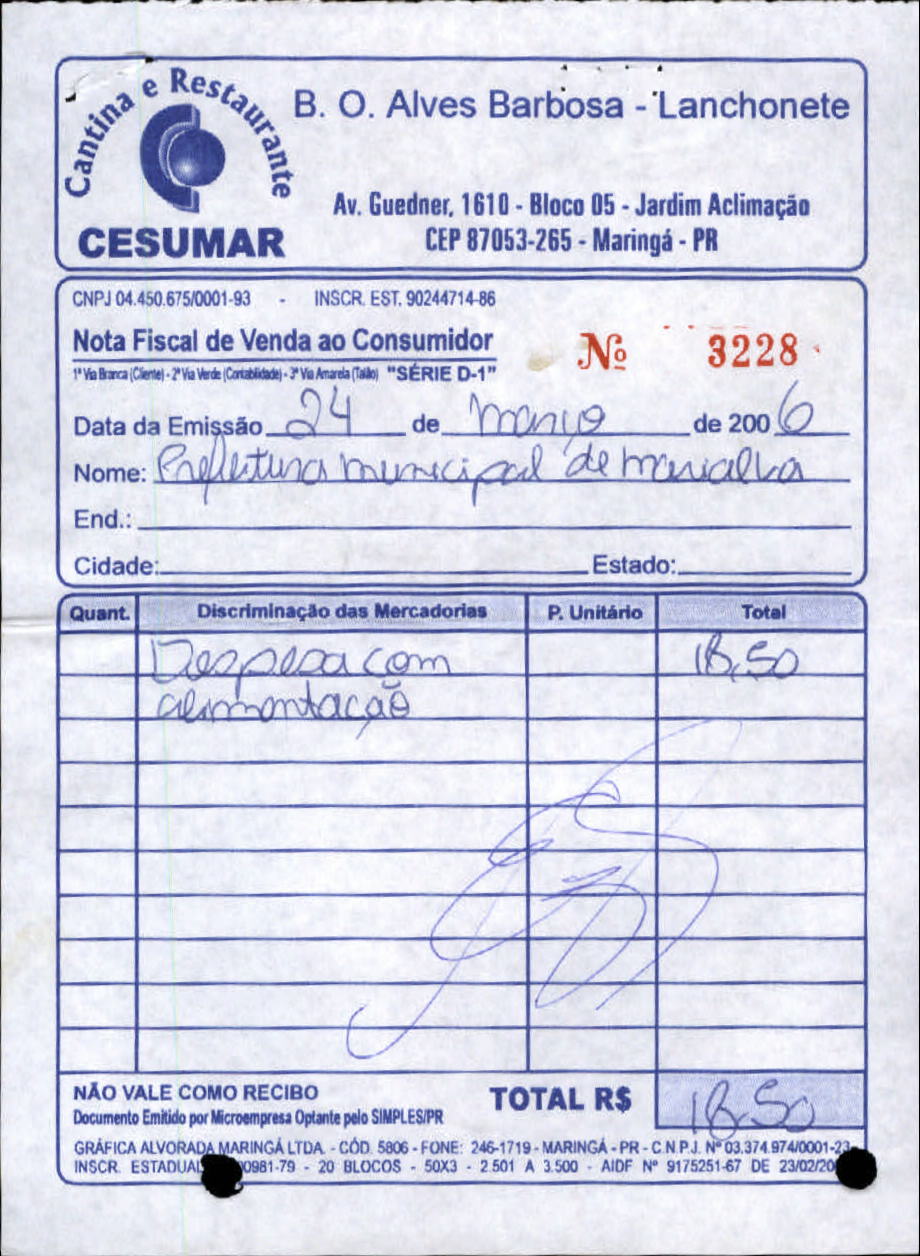 Cantina e Restaurante
CESUMAR
B. O. Alves Barbosa - Lanchonete
Av. Guedner, 1610 - Bloco 05 - Jardim Aclimação
CEP 87053-265 - Maringá - PR
CNPJ 04.450.675/0001-93 - INSCR. EST. 90244714-86
Nota Fiscal de Venda ao Consumidor
Nº 3228
1ª Via Branca (Cliente) - 2ª Via Verde (Contabilidade) - 3ª Via Amarela (Talão) "SÉRIE D-1"
Data da Emissão 24 de março de 2006
Nome: Prefeitura municipal de marialva
End.:
Cidade: Estado:
Quant. Discriminação das Mercadorias P. Unitário Total
Despesa com 18,50
alimentação
NÃO VALE COMO RECIBO
Documento Emitido por Microempresa Optante pelo SIMPLES/PR
TOTAL R$ 18,50
GRÁFICA ALVORADA MARINGÁ LTDA. - CÓD. 5806 - FONE: 246-1719 - MARINGÁ - PR - C.N.P.J. Nº 03.374.974/0001-23
INSCR. ESTADUAL 0981-79 - 20 BLOCOS - 50X3 - 2.501 A 3.500 - AIDF Nº 9175251-67 DE 23/02/20